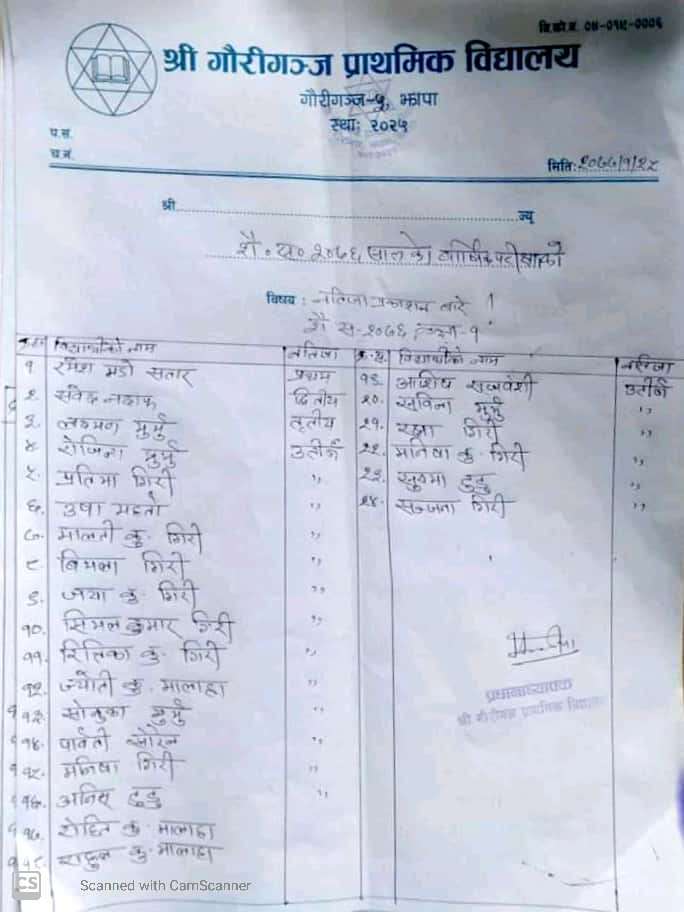 वि.को.नं. ०४-०१५-०००६
श्री गौरीगञ्ज प्राथमिक विद्यालय
गौरीगञ्ज-५, झापा
स्थाः २०२५
प.स.
च.नं.
मितिः २०७७/१/२५
श्री ज्यू
शै॰स॰ २०७६ सालको वार्षिक परीक्षाको
विषय : नतिजा प्रकाशन बारे ।
शै स-२०७६ कक्षा-१
क्र.सं विद्यार्थीको नाम नतिजा क्र.सं. विद्यार्थीको नाम नतिजा
१ रमेश मडो सतार प्रथम १९. आशिष राजवंशी उतीर्ण
२. द्वितीय २०. सुविना मुर्मु ,,
३. लक्ष्मण मुर्मु तृतीय २१. गिरी ,,
४ रोजिना मुर्मु उतीर्ण २२. मनिषा कु. गिरी ,,
५. प्रतिमा गिरी ,, २३. सुषमा टुडु ,,
६. उषा महतो ,, २४. सञ्जना गिरी ,,
७. मालती कु. गिरी ,,
८ विमला गिरी ,,
९. जया कु. गिरी ,,
१०. सिमल कुमार गिरी ,,
११. रितिका कु. गिरी ,,
१२. ज्योती कु. मालाहा ,,
१३. मुर्मु ,,
१४. पार्वती सोरेन ,,
१५. मनिषा गिरी ,,
१६. अनिस टुडु ,,
१७. रोहित कु. मालाहा
१८. राहुल कु. मालाहा
प्रधानाध्यापक
श्री गौरीगञ्ज प्राथमिक विद्यालय
CS Scanned with CamScanner